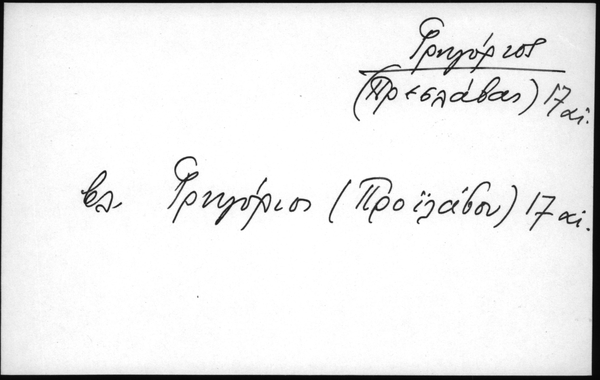 Γρηγόριος
(Πρεσλάβας) 17 αἰ.
βλ. Γρηγόριος (Προϊλάβου) 17 αἰ.